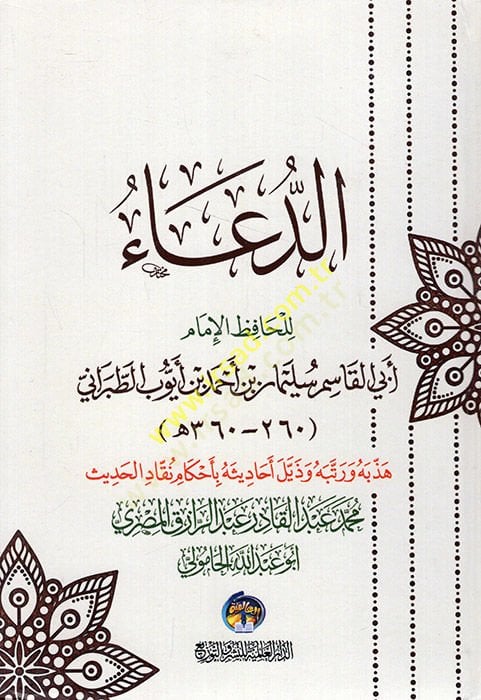 الدُّعَاءُ
لِلْحَافِظِ الإِمَامِ
أَبِي القَاسِمِ سُلَيْمَان بْن أَحْمَد بْن أَيُّوب الطَّبَرَانِي
(٢٦٠ - ٣٦٠ هـ)
هَذَّبَهُ وَرَتَّبَهُ وَذَيَّلَ أَحَادِيثَهُ بِأَحْكَامِ نُقَّادِ الحَدِيث
مُحَمَّد عَبْد القَادِر عَبْد الرَّازِق المِصْرِي
أَبُو عَبْد اللَّه الحَامُولِي
الدار العالمية للنشر والتوزيع